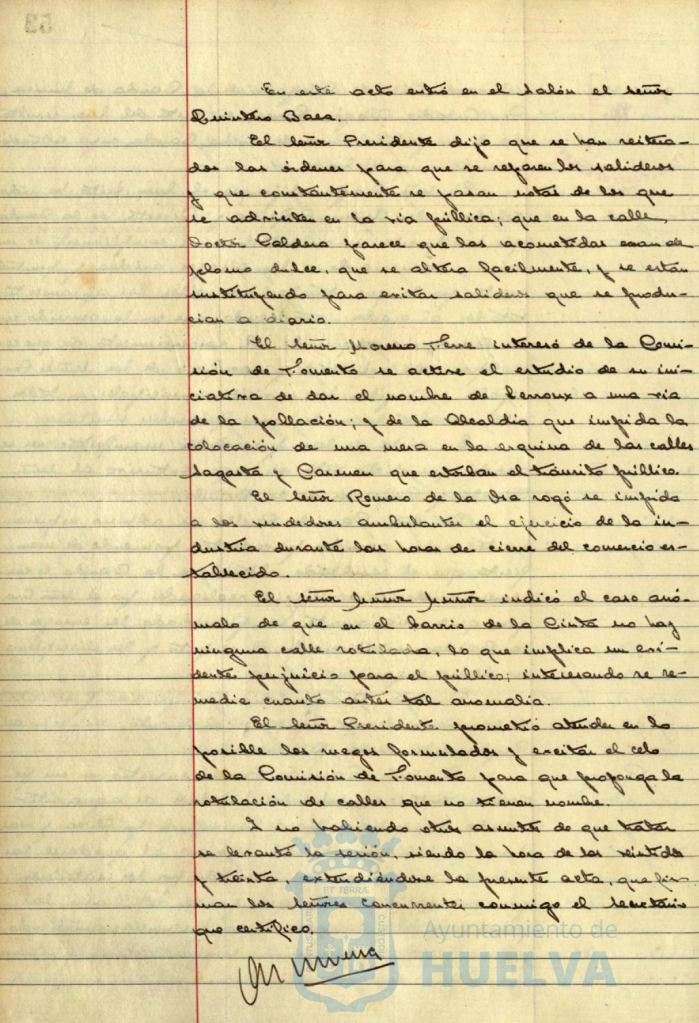 En este acto entró en el salón el señor
Quintero Baea.
El señor Presidente dijo que se han reitera-
dos las órdenes para que se reparen los salideros
y que constantemente se pasan notas de los que
se advierten en la via pública; que en la calle
Doctor Caldera parece que las acometidas eran de
plomo dulce, que se altera facilmente, y se están
sustituyendo para evitar salideros que se produ-
cian a diario.
El señor Moreno Ferre interesó de la Comi-
sión de Fomento se active el estudio de su ini-
ciativa de dar el nombre de Lerroux a una via
de la población; y de la Alcaldia que impida la
colocación de una mesa en la esquina de las calles
Sagasta y Carmen que estorban el tránsito público.
El señor Romero de la Osa rogó se impida
a los vendedores ambulantes el ejercicio de la in-
dustria durante las horas de cierre del comercio es-
tablecido.
El señor Muñoz Muñoz indicó el caso anó-
malo de que en el barrio de la Cinta no hay
ninguna calle rotulada, lo que implica un evi-
dente perjuicio para el público; interesando se re-
medie cuanto antes tal anomalia.
El señor Presidente prometió atender en lo
posible los ruegos formulados y excitar el celo
de la Comisión de Fomento para que proponga la
rotulación de calles que no tienen nombre.
Y no habiendo otros asuntos de que tratar
se levantó la sesión, siendo la hora de las veintidos
y treinta, extendiéndose la presente acta, que fir-
man los señores concurrentes conmigo el secretario
que certifico.
Ayuntamiento de
HUELVA